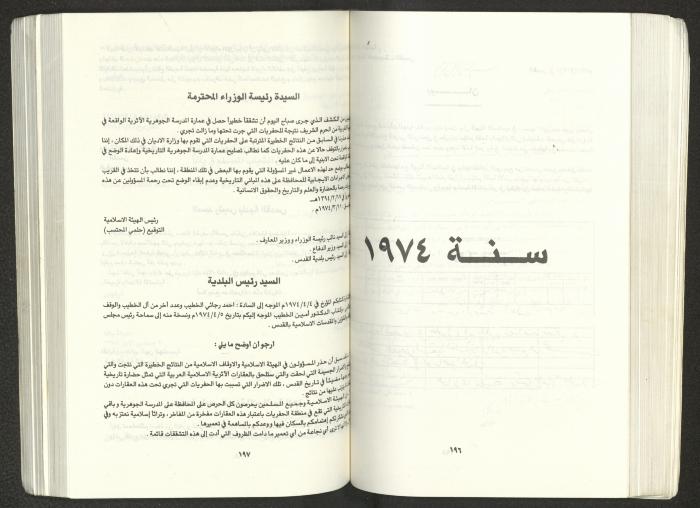 سنة ١٩٧٤
١٩٦
السيدة رئيسة الوزراء المحترمة
من الكشف الذي جرى صباح اليوم أن تشققاً خطيراً حصل في عمارة المدرسة الجوهرية الأثرية الواقعة في
الغربية من الحرم الشريف نتيجة للحفريات التي جرت تحتها وما زالت تجري.
في السابق من النتائج الخطيرة المترتبة على الحفريات التي تقوم بها وزارة الاديان في ذلك المكان، إننا
بالتوقف حالا عن هذه الحفريات كما نطالب تصليح عمارة المدرسة الجوهرية التاريخية وإعادة الوضع في
تحت الابنية إلى ما كان عليه.
وضع حد لهذه الاعمال غير المسؤولة التي يقوم بها البعض في تلك المنطقة، إننا نطالب بأن تتخذ في القريب
الاجراءات الايجابية للمحافظة على هذه المباني التاريخية وعدم إبقاء الوضع تحت رحمة المسؤولين عن هذه
بالحضارة والعلم والتاريخ والحقوق الانسانية.
١٣٩٤/٢/١٦هـ
١٩٧٤/٣/١٠م.
رئيس الهيئة الاسلامية
التوقيع (حلمي المحتسب)
إلى السيد نائب رئيسة الوزراء ووزير المعارف.
إلى السيد وزير الدفاع.
إلى السيد رئيس بلدية القدس.
السيد رئيس البلدية
المؤرخ في ١٩٧٤/٤/٤م الموجه إلى السادة: احمد رجائي الخطيب وعدد آخر من آل الخطيب والوقف
الدكتور أمين الخطيب الموجه إليكم بتاريخ ١٩٧٤/٤/٥م ونسخة منه إلى سماحة رئيس مجلس
والمقدسات الاسلامية بالقدس.
ارجو ان اوضح ما يلي:
سبق أن حذر المسؤولون في الهيئة الاسلامية والاوقاف الاسلامية من النتائج الخطيرة التي نتجت والتي
الجسيمة التي لحقت والتي ستلحق بالعقارات الأثرية الاسلامية العربية التي تمثل حضارة تاريخية
في تاريخ القدس، تلك الاضرار التي تسببت بها الحفريات التي تجري تحت هذه العقارات دون
عليها من نتائج.
الهيئة الاسلامية وجميع المسلمين يحرصون كل الحرص على المحافظة على المدرسة الجوهرية و باقي
التي تقع في منطقة الحفريات باعتبار هذه العقارات مفخرة من المفاخر، وتراثاً إسلامية نعتز به وفي
إهتمامكم بالسكان فيها ووعدكم بالمساهمة في تعميرها.
أي نجاعة من أي تعمير ما دامت الظروف التي أدت إلى هذه التشققات قائمة.
١٩٧